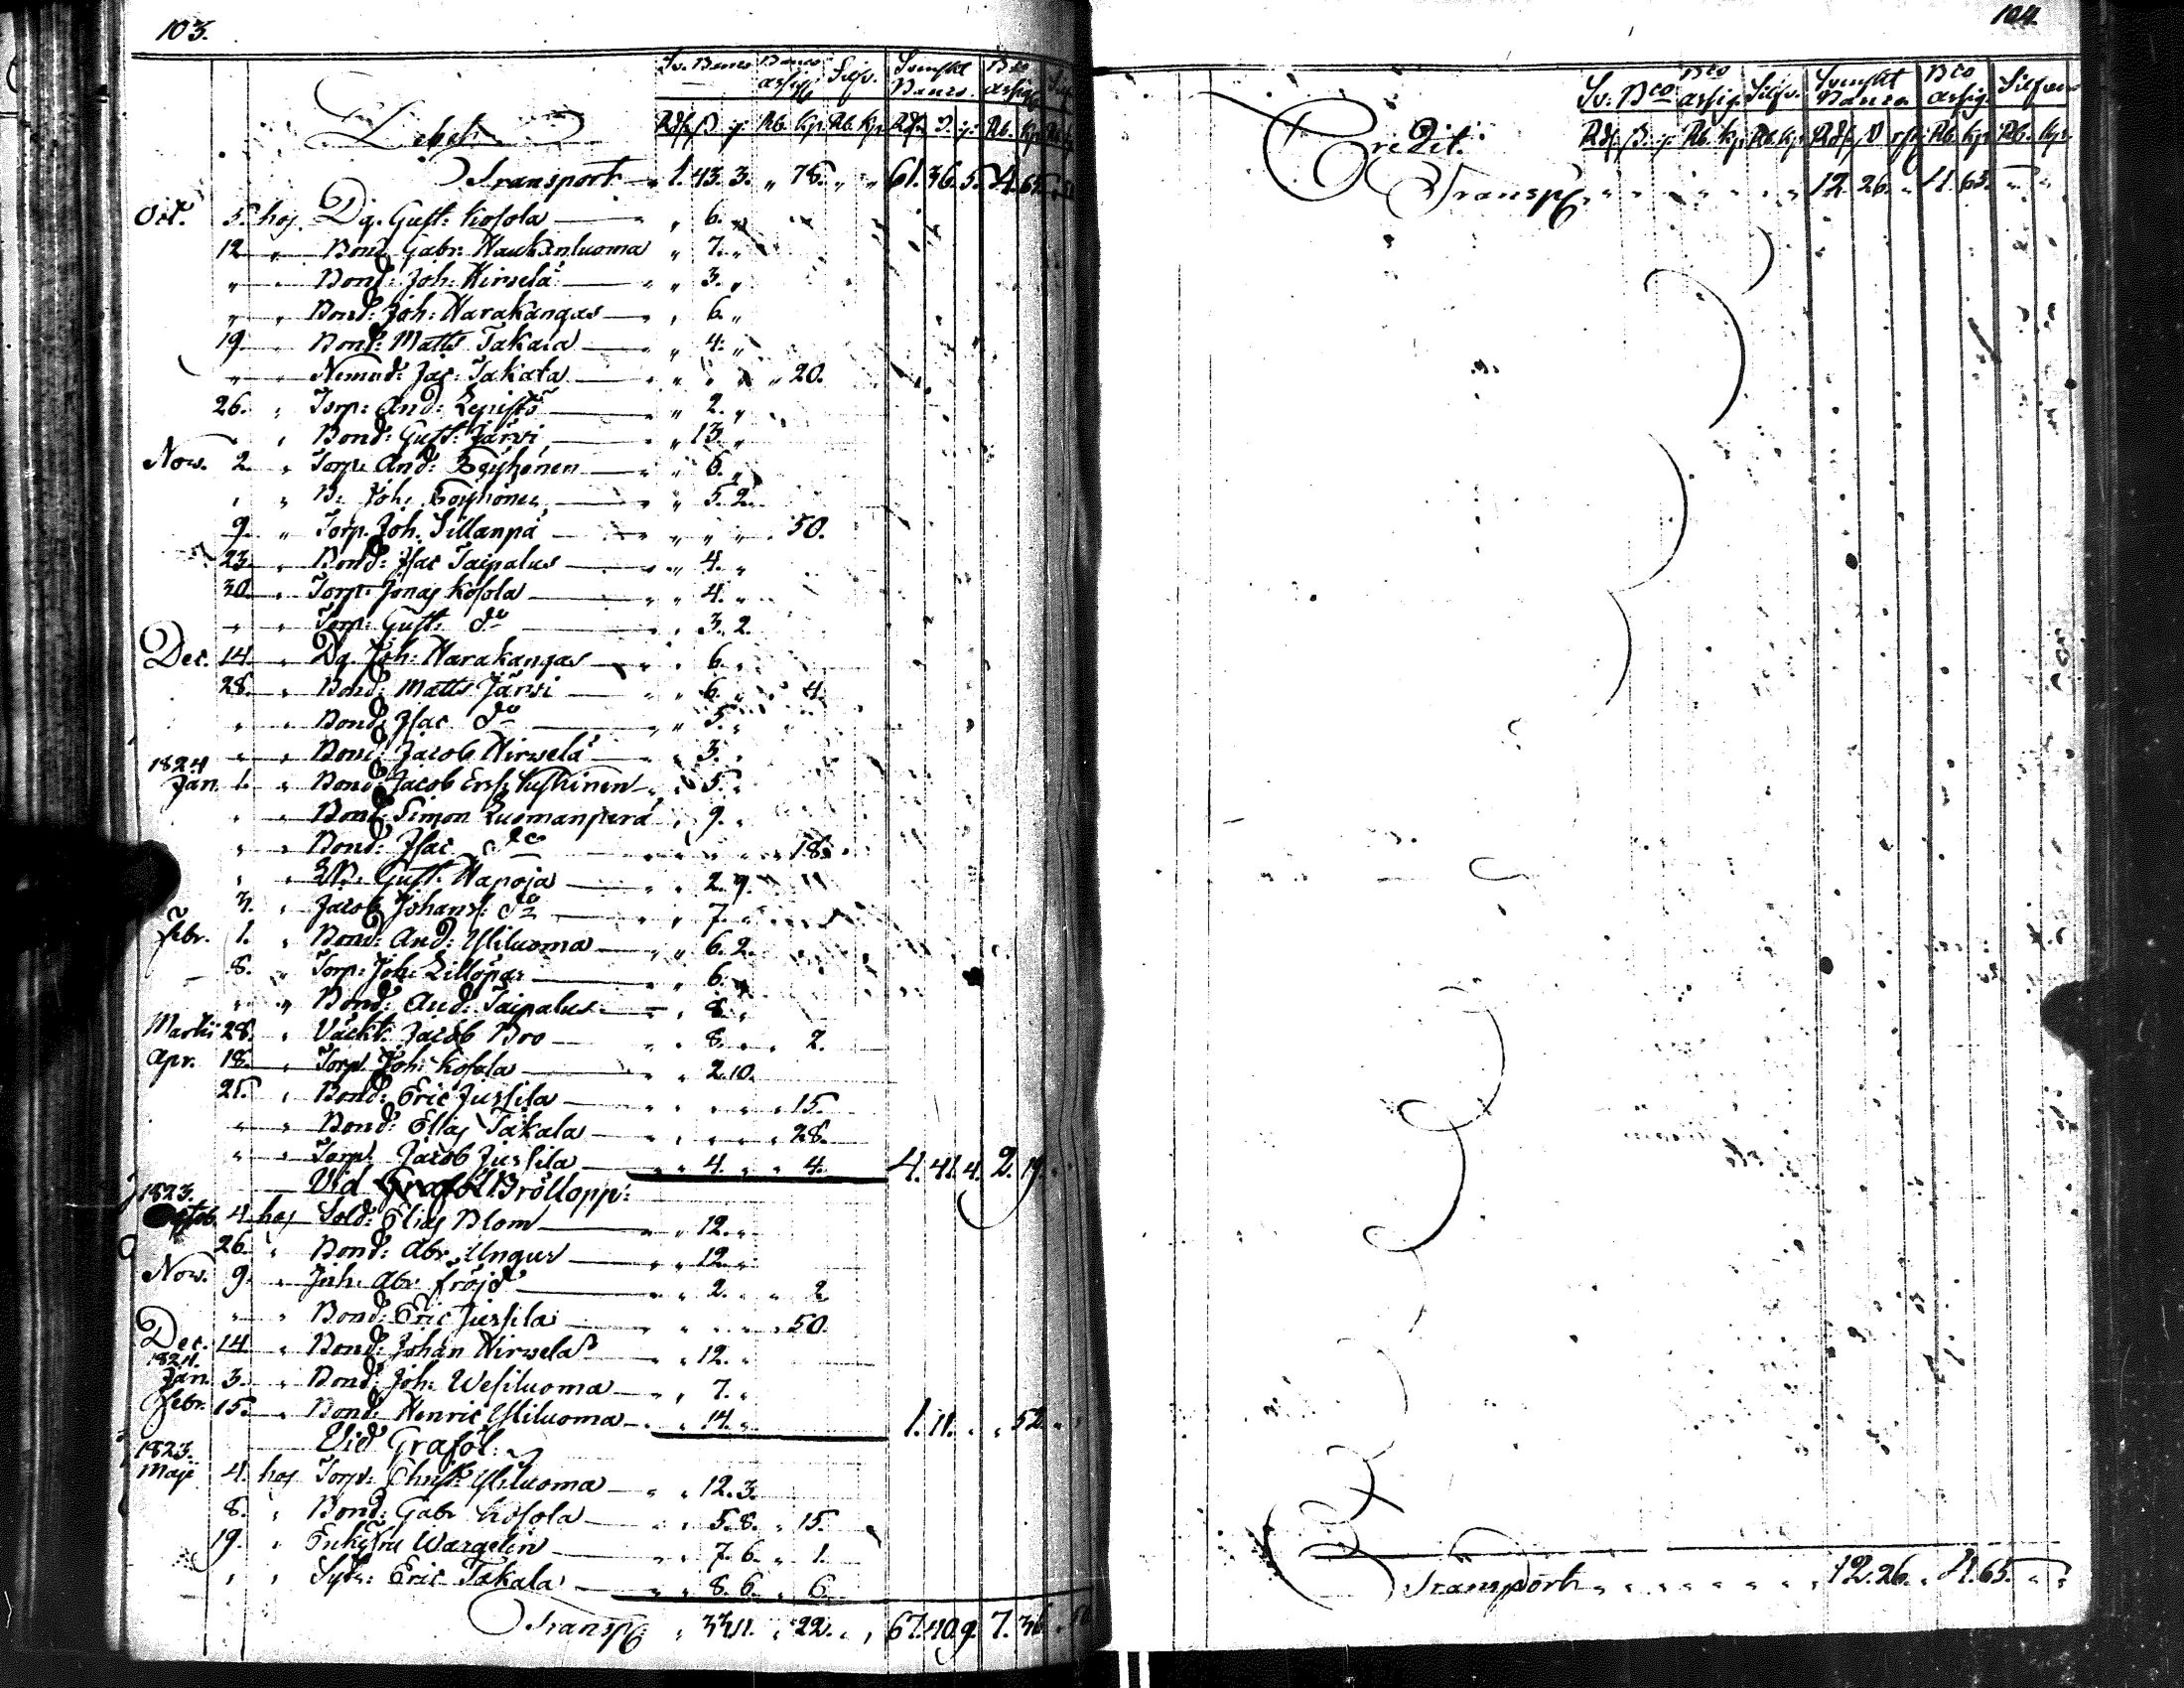 103.
Sv. Banco Banco assig. Silfv. Svenskt Banco. Bco assig. Silf
Debet. Rdr ß r. Rb. Kp. Rb. Kp. Rdr ß. r. Rb. Kp.
Transport " 1. 43. 3. " 78. " " 61. 36. 5. 4. 65.
Oct. 5. hos Dg. Gust: Kosola " 6. "
12 " Bond. Gabr: Haukanluoma " 7. "
" " Bond: Joh: Hirvelä " " 3. "
" " Bond: Joh: Harakangas " " 6 "
19 " Bond: Matts Takala " " 4. "
" " Nemnd: Jac: Takala " " " " 20.
26. " Torp: And: Lepistö " " 2. "
" Bond: Gust: Järvi " " 13. "
Nov. 2. " Torp: And: Töyhönen " " 6. "
" " B: Joh: Töyhönen " " 5. 2.
9. " Torp. Joh. Sillanpä " " " " 50.
23. " Bond: Isac Taipalus " " 4. "
30. " Torp: Jonas Kosola " " 4. "
" " Torp: Gust: do " " 3. 2.
Dec. 14. " Dg. Joh: Harakangas " " 6. "
28. " Bond: Matts Järvi " " 6. " " 4.
" " Bond: Isac do " " 5. "
" " Bond: Jacob Hirvelä " 3. "
1824
Jan. 1. " Bond: Jacob Ers: " " 5. "
" " Bond: Simon Luomanperä " 9. "
" " Bond: Isac do " " " " 18.
" " Gust: Hapoja " " 2. 9.
3. " Jacob Johans: do " " 7. "
Febr. 1. " Bond: And: Yliluoma " " 6. 2.
8. " Torp: Joh: Lillöpas " " 6. "
" " Bond: And: Taipalus " 8. "
Martii 28. " Väckt: Jacob Bro " " 8. " " 2.
Apr. 18. " Torp. Joh: Kosola " " 2. 10.
25. " Bond: Eric Jussila " " " " 15.
" " Bond: Elias Takala " " " " 28.
" " Torp: Jacob Jussila " " 4. " " 4. 4. 41. 4. 2. 19. "
Vid Bröllopp:
1823.
Octob. 4. hos Sold: Elias Blom " " 12. "
26. " Bond: Abr. Ungus " " 12. "
Nov. 9. " Inh. Abr. Fröjd " " 2. " " 2
" " Bond: Eric Jussila " " " " 50.
Dec. 14 " Bond: Johan Hirvelä " " 12. "
1824.
Jan. 3. " Bond: Joh: Wesiluoma " " 7. "
Febr. 15. " Bond: Henric Yliluoma " " 14. " 1. 11. " " 52. "
Vid Graföl:
1823.
Maji 4. hos Torp: Christ: Yliluoma " " 12. 3.
8. " Bond: Gabr Kosola " " 5. 8. " 15.
19. " Enkefru Wargelin " " 7. 6. " 1.
" " Sytn: Eric Takala " " 8. 6. " 6.
Transp. " 33. 11. " 22. " " 67. 40. 9. 7. 36.
104.
Sv: Bco Bco assig. Silfv. Svenskt Banco Bco assig. Silfver
Credit. Rdr. ß. r. Rb. Kp. Rb. Kp. Rdr ß rst Rb. Kp. Rb. Kp.
Transp. " " " " " " " 12. 26. " 4. 65. " "
Transport " " " " " " " 12. 26. " 4. 65. " "